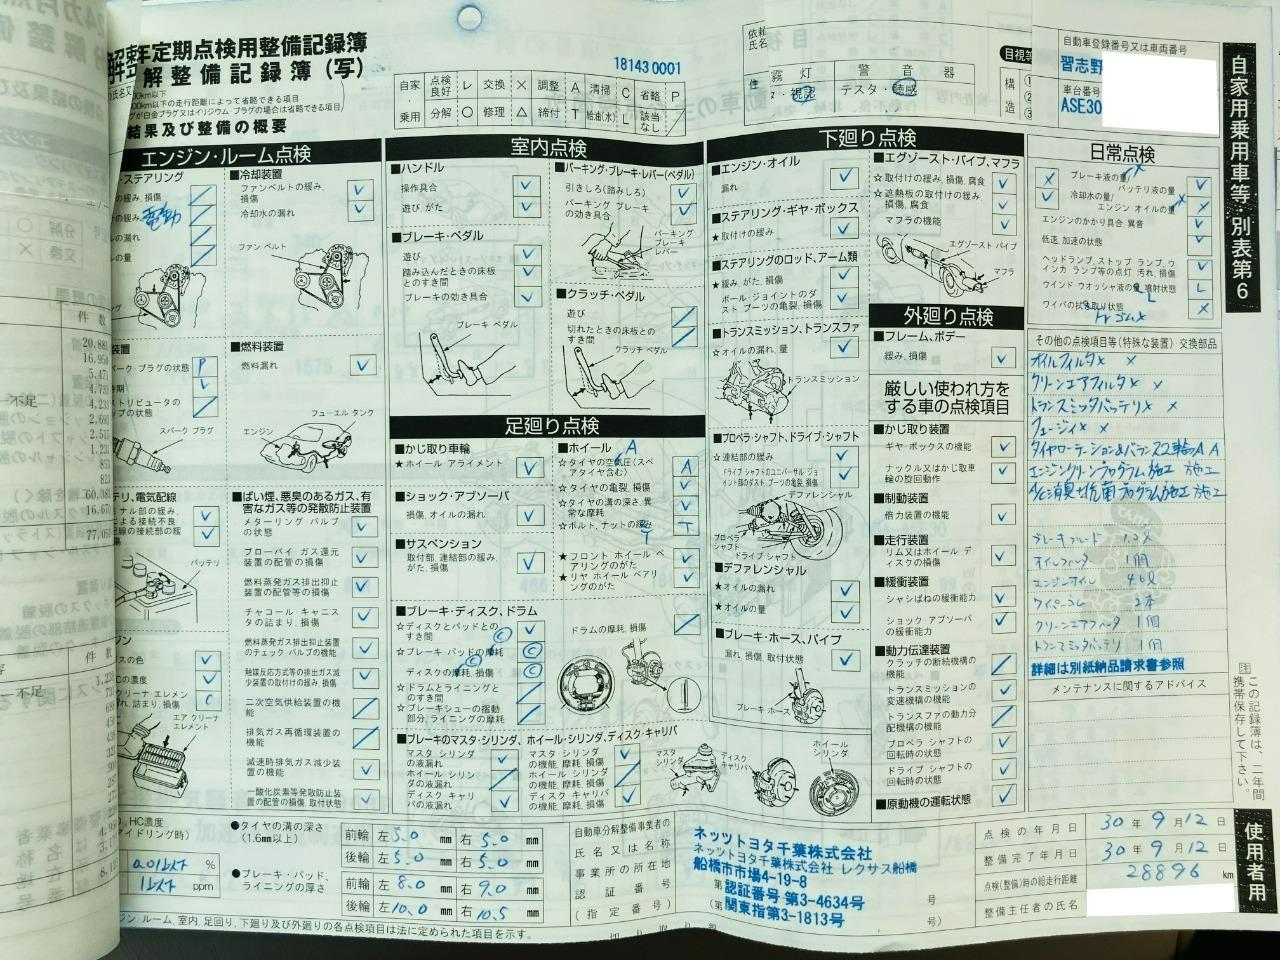 年定期点検用整備記録簿
解整備記録簿（写）
000km以下の走行距離によって省略できる項目
結果及び整備の概要
181430001
自家
乗用
点検良好 レ 交換 × 調整 A 清掃 C 省略 P
分解 ○ 修理 △ 締付 T 給油(水) L 該当なし ／
依頼
氏名
住
霧灯 警音器
視認 テスタ・聴感
目視等
構造
①
②
③
自動車登録番号又は車両番号
習志野
車台番号
ASE30
自家用乗用車等・別表第6
エンジン・ルーム点検
ステアリング
の緩み、損傷
の緩み
電動
の漏れ
の量
■冷却装置
ファンベルトの緩み、損傷
冷却水の漏れ
ファン ベルト
装置
パーク・プラグの状態 P
ストリビュータの
ップの状態
スパーク プラグ
■燃料装置
燃料漏れ
フューエル タンク
エンジン
テリ、電気配線
ミナル部の緩み、
による接続不良
配線の接続部の緩み
バッテリ
■ばい煙、悪臭のあるガス、有害なガス等の発散防止装置
メターリング バルブの状態
ブローバイ ガス還元装置の配管の損傷
燃料蒸発ガス排出抑止装置の配管等の損傷
チャコール キャニスタの詰まり、損傷
燃料蒸発ガス排出抑止装置のチェック バルブの機能
触媒反応方式等の排出ガス減少装置の取付けの緩み、損傷
二次空気供給装置の機能
排気ガス再循環装置の機能
減速時排気ガス減少装置の機能
一酸化炭素等発散防止装置の配管の損傷、取付状態
ジン
スの色
HCの濃度
クリーナ エレメン
れ、詰まり、損傷 C
エア クリーナ
エレメント
室内点検
■ハンドル
操作具合
遊び、がた
■ブレーキ・ペダル
遊び
踏み込んだときの床板とのすき間
ブレーキの効き具合
ブレーキ ペダル
■パーキング・ブレーキ・レバー(ペダル)
引きしろ(踏みしろ)
パーキング ブレーキの効き具合
パーキング ブレーキ レバー
■クラッチ・ペダル
遊び
切れたときの床板とのすき間
クラッチ ペダル
足廻り点検
■かじ取り車輪
★ホイール アライメント
■ショック・アブソーバ
損傷、オイルの漏れ
■サスペンション
取付部、連結部の緩み、がた、損傷
■ホイール
☆タイヤの空気圧(スペアタイヤ含む) A
☆タイヤの亀裂、損傷
☆タイヤの溝の深さ、異常な摩耗
☆ボルト、ナットの緩み T
★フロント ホイール ベアリングのがた
★リヤ ホイール ベアリングのがた
■ブレーキ・ディスク、ドラム
☆ディスクとパッドとのすき間
☆ブレーキ パッドの摩耗 C
ディスクの摩耗、損傷 C
☆ドラムとライニングとのすき間
☆ブレーキシューの摺動部分、ライニングの摩耗
ドラムの摩耗、損傷
■ブレーキのマスタ・シリンダ、ホイール・シリンダ、ディスク・キャリパ
マスタ シリンダの液漏れ
ホイール シリンダの液漏れ
ディスク キャリパの液漏れ
マスタ シリンダの機能、摩耗、損傷
ホイール シリンダの機能、摩耗、損傷
ディスク キャリパの機能、摩耗、損傷
マスタ シリンダ
ディスク キャリパ
ホイール シリンダ
下廻り点検
■エンジン・オイル
漏れ
■ステアリング・ギヤ・ボックス
★取付けの緩み
■ステアリングのロッド、アーム類
★緩み、がた、損傷
ボール・ジョイントのダスト ブーツの亀裂、損傷
■トランスミッション、トランスファ
☆オイルの漏れ、量
トランスミッション
■プロペラ・シャフト、ドライブ・シャフト
☆連結部の緩み
ドライブ シャフトのユニバーサル ジョイント部のダスト ブーツの亀裂、損傷
デファレンシャル
プロペラ シャフト
ドライブ シャフト
■デファレンシャル
★オイルの漏れ
★オイルの量
■ブレーキ・ホース、パイプ
漏れ、損傷、取付状態
ブレーキ ホース
■エグゾースト・パイプ、マフラ
☆取付けの緩み、損傷、腐食
☆遮熱板の取付けの緩み、損傷、腐食
マフラの機能
エグゾースト パイプ
マフラ
外廻り点検
■フレーム、ボデー
緩み、損傷
厳しい使われ方をする車の点検項目
■かじ取り装置
ギヤ・ボックスの機能
ナックル又はかじ取車輪の旋回動作
■制動装置
倍力装置の機能
■走行装置
リム又はホイール ディスクの損傷
■緩衝装置
シャシばねの緩衝能力
ショック アブソーバの緩衝能力
■動力伝達装置
クラッチの断続機構の機能
トランスミッションの変速機構の機能
トランスファの動力分配機構の機能
プロペラ シャフトの回転時の状態
ドライブ シャフトの回転時の状態
■原動機の運転状態
日常点検
ブレーキ液の量/バッテリ液の量
冷却水の量/エンジン オイルの量
エンジンのかかり具合、異音
低速、加速の状態
ヘッドランプ、ストップ ランプ、ウインカ ランプ等の点灯、汚れ、損傷
ウインド ウオッシャ液の量、噴射状態 L
ワイパの拭き取り状態 ×
その他の点検項目等(特殊な装置) 交換部品
オイルフィルタ× ×
クリーンエアフィルタ× ×
トランスミッタバッテリ× ×
フュージィ× ×
タイヤローテーション&バランス四輪A A
エンジンクリーンプログラム施工 施工
A/C消臭・抗菌プログラム施工 施工
ブレーキフルード
オイルフィルタ 1個
エンジンオイル
ワイパーゴム 2本
クリーンエアフィルタ 1個
トランスミッタバッテリ 1個
詳細は別紙納品請求書参照
メンテナンスに関するアドバイス
注 この記録簿は、二年間携帯保存して下さい。
HC濃度
アイドリング時)
0.01以下 %
1以下 ppm
●タイヤの溝の深さ
(1.6mm以上)
前輪 左 5.0 mm 右 5.0 mm
後輪 左 5.0 mm 右 5.0 mm
●ブレーキ・パッド、ライニングの厚さ
前輪 左 8.0 mm 右 9.0 mm
後輪 左 10.0 mm 右 10.5 mm
自動車分解整備事業者の
氏名又は名称
事業所の所在地
認証番号
(指定番号)
ネッツトヨタ千葉株式会社
ネッツトヨタ千葉株式会社 レクサス船橋
船橋市市場4-19-8
第 認証番号 第3-4634号 号
(第 関東指第3-1813号 号)
点検の年月日 30年9月12日
整備完了年月日 30年9月12日
点検(整備)時の総走行距離 28896 km
整備主任者の氏名
使用者用
ジン・ルーム、室内、足廻り、下廻り及び外廻りの各点検項目は法に定められた項目を示す。